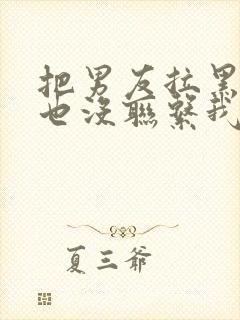 把男友拉黑
也沒聯繫我
夏三爺